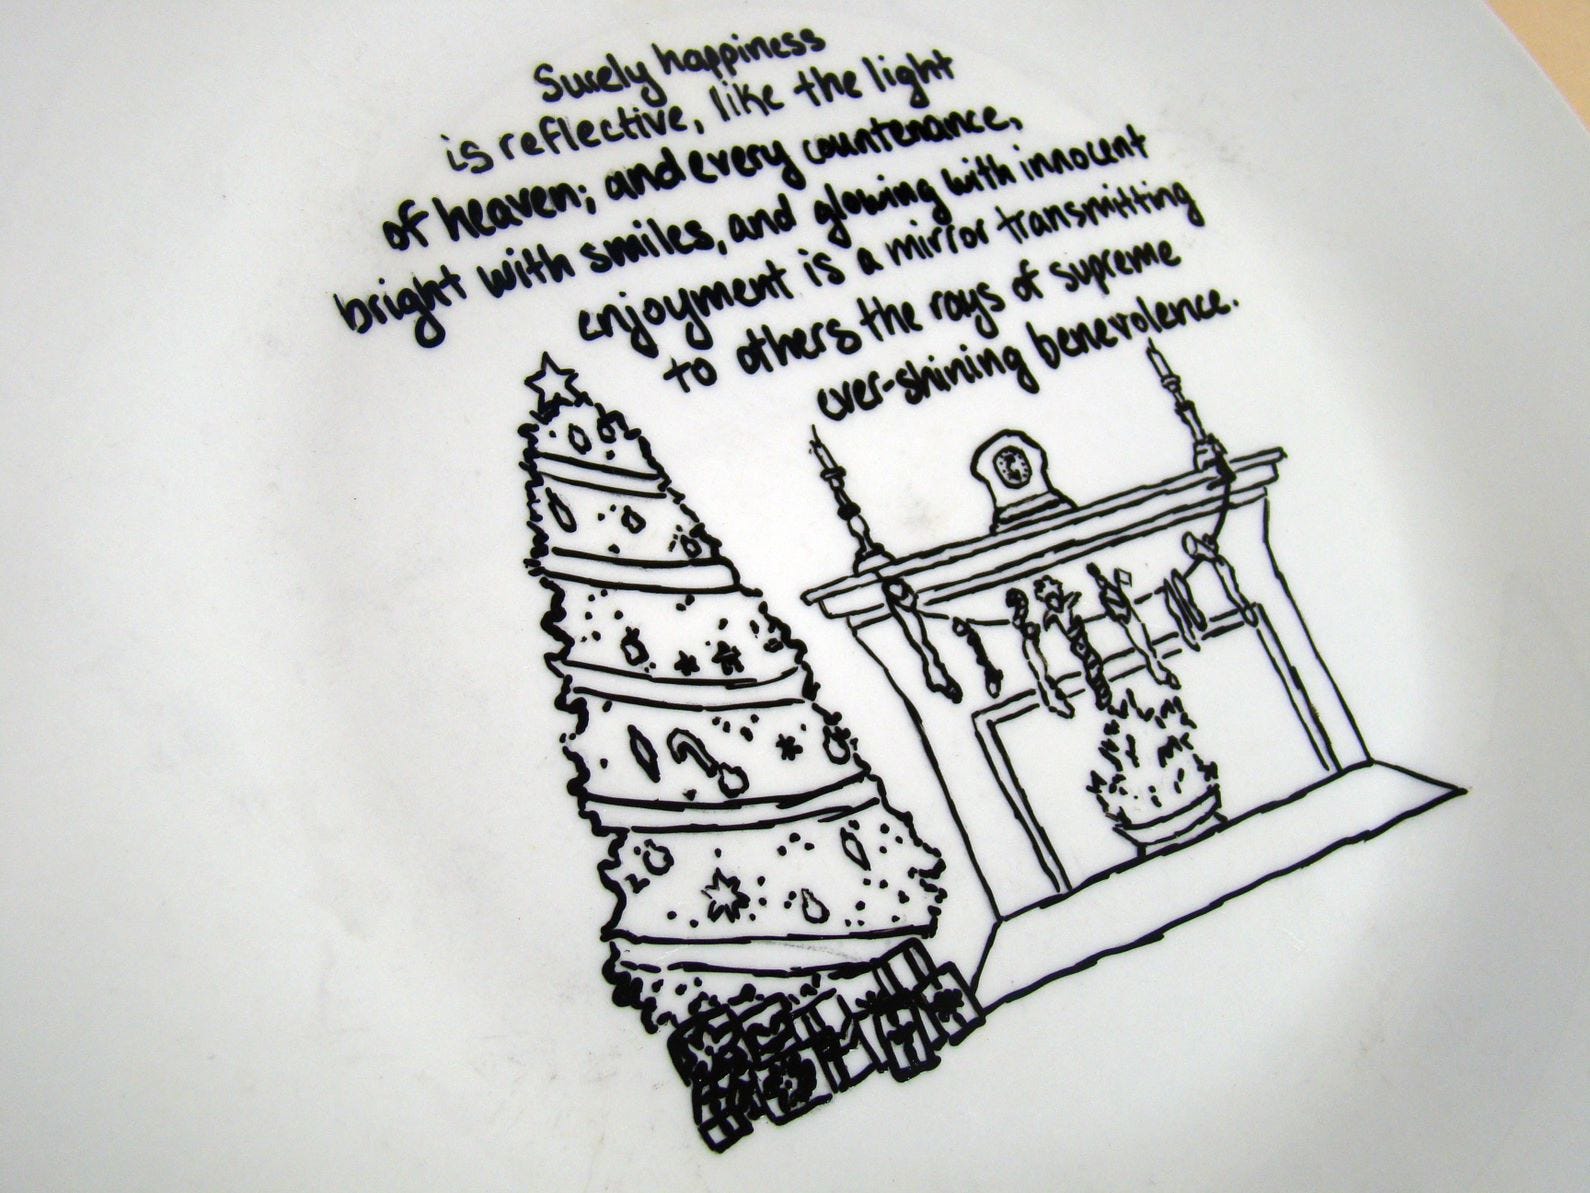 Surely happiness
is reflective, like the light
of heaven; and every countenance,
bright with smiles, and glowing with innocent
enjoyment is a mirror transmitting
to others the rays of supreme
ever-shining benevolence.